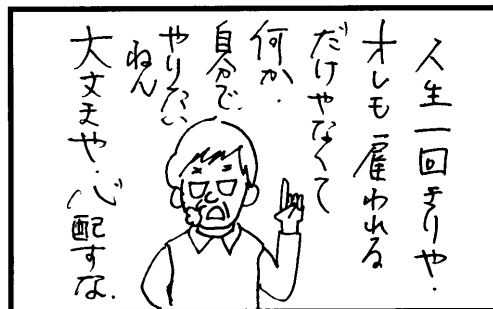 人生一回きりや.
オレも雇われる
だけやなくて
何か.
自分で.
やりたい
ねん
大丈夫や.心配すな.